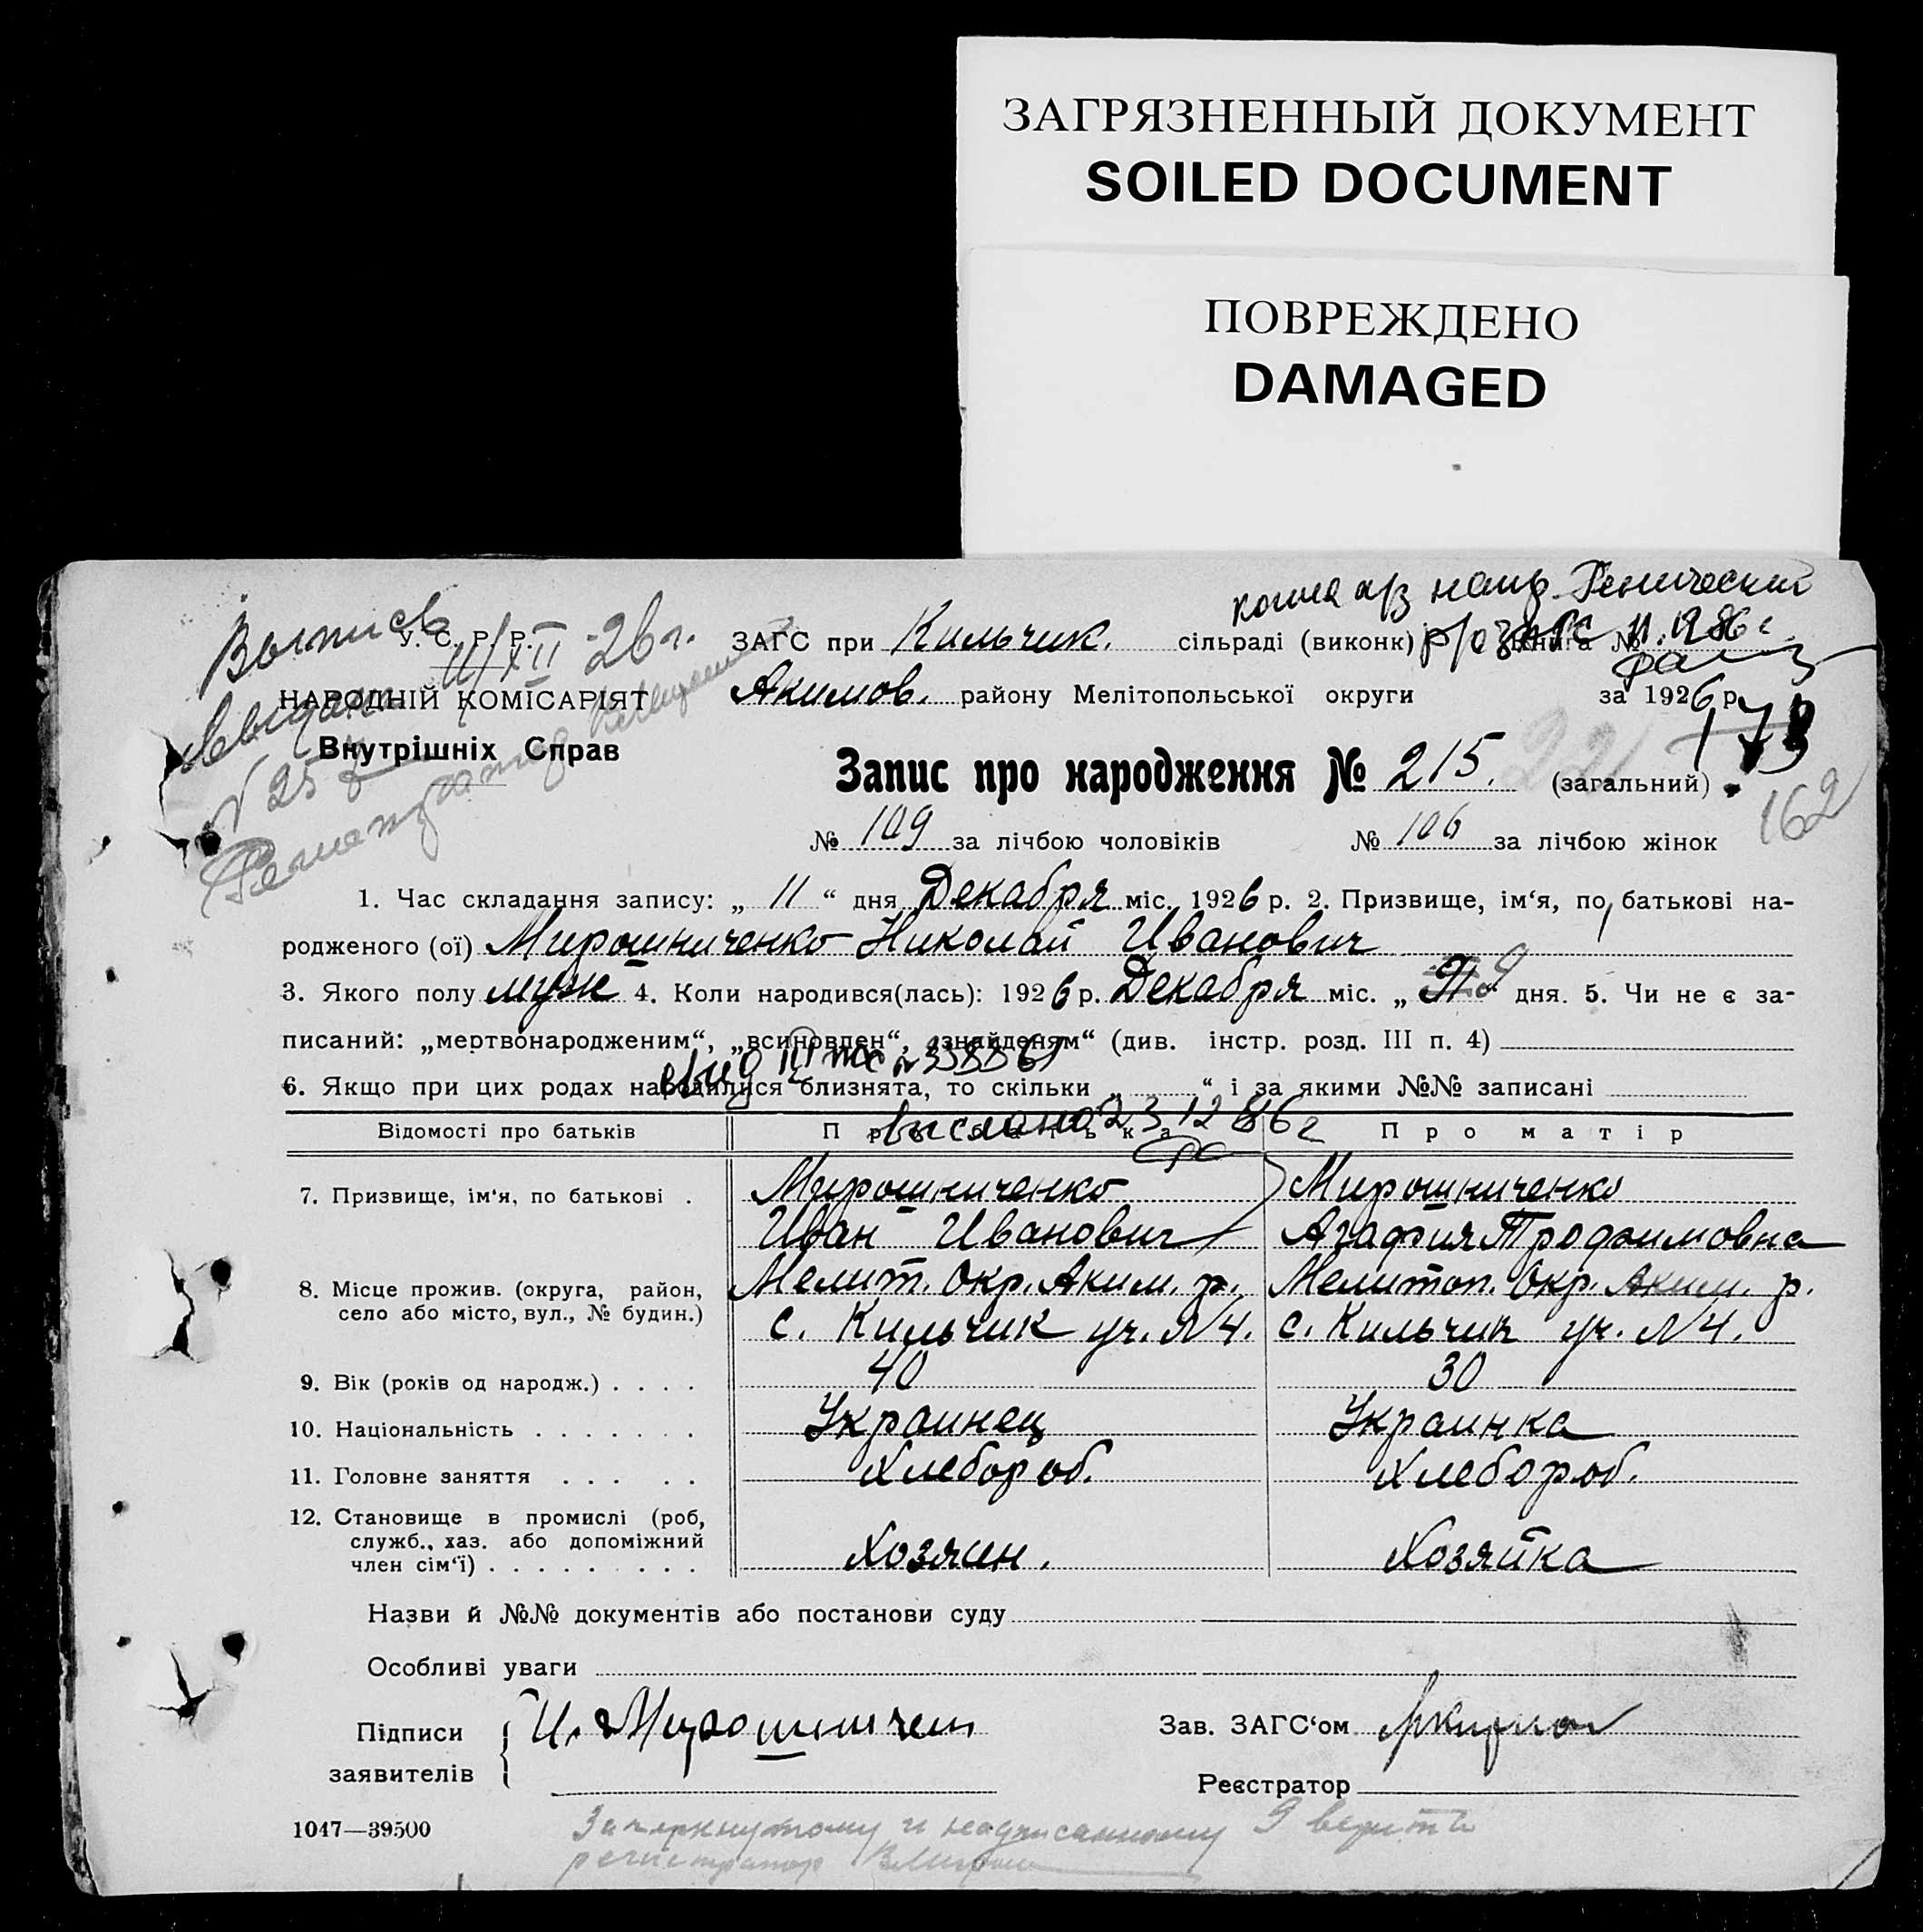 ЗАГРЯЗНЕННЫЙ ДОКУМЕНТ
SOILED DOCUMENT
ПОВРЕЖДЕНО
DAMAGED
копия а/з напр. Генический
р/о ЗАГС 11.12.86 г
Выпись
11/XII-26 г.
выдана
N 25
У. С. Р. Р.
НАРОДНІЙ КОМІСАРІЯТ
Внутрішніх Справ
ЗАГС при Кильчик. сільраді (виконк) Книга №
Акимов. району Мелітопольської округи за 1926 р.
173
Запис про народження № 215. 221 (загальний)
162
№ 109 за лічбою чоловіків № 106 за лічбою жінок
1. Час складання запису: „ 11 “ дня Декабря міс. 1926 р. 2. Призвище, ім‘я, по батькові на-
родженого (ої) Мирошниченко Николай Иванович
3. Якого полу муж 4. Коли народився(лась): 1926 р. Декабря міс. „ 9 “ дня. 5. Чи не є за-
писаний: „мертвонародженим“, „всиновлен“, „знайденям“ (див. інстр. розд. III п. 4)
6. Якщо при цих родах народилися близнята, то скільки „ “ і за якими №№ записані
выслано 23 12 86 г
Відомості про батьків Про батька Про матір
7. Призвище, ім‘я, по батькові . Мирошниченко Мирошниченко
Иван Иванович Агафия Трофимовна
8. Місце прожив. (округа, район, Мелит. Окр. Аким. р. Мелитоп. Окр. Аким. р.
село або місто, вул., № будин.) с. Кильчик уч. N 4. с. Кильчик уч. N 4.
9. Вік (років од народж.) . . . . 40 30
10. Національність . . . . . . . Украинец Украинка
11. Головне заняття . . . . . Хлебороб. Хлебороб.
12. Становище в промислі (роб,
служб., хаз. або допоміжний
член сім‘ї) . . . . . . . . . Хозяин. Хозяйка
Назви й №№ документів або постанови суду
Особливі уваги
Підписи И. Мирошничен Зав. ЗАГС‘ом
заявителів Реєстратор
1047—39500
Зачеркнутому и надписанному 9 верить
регистратор